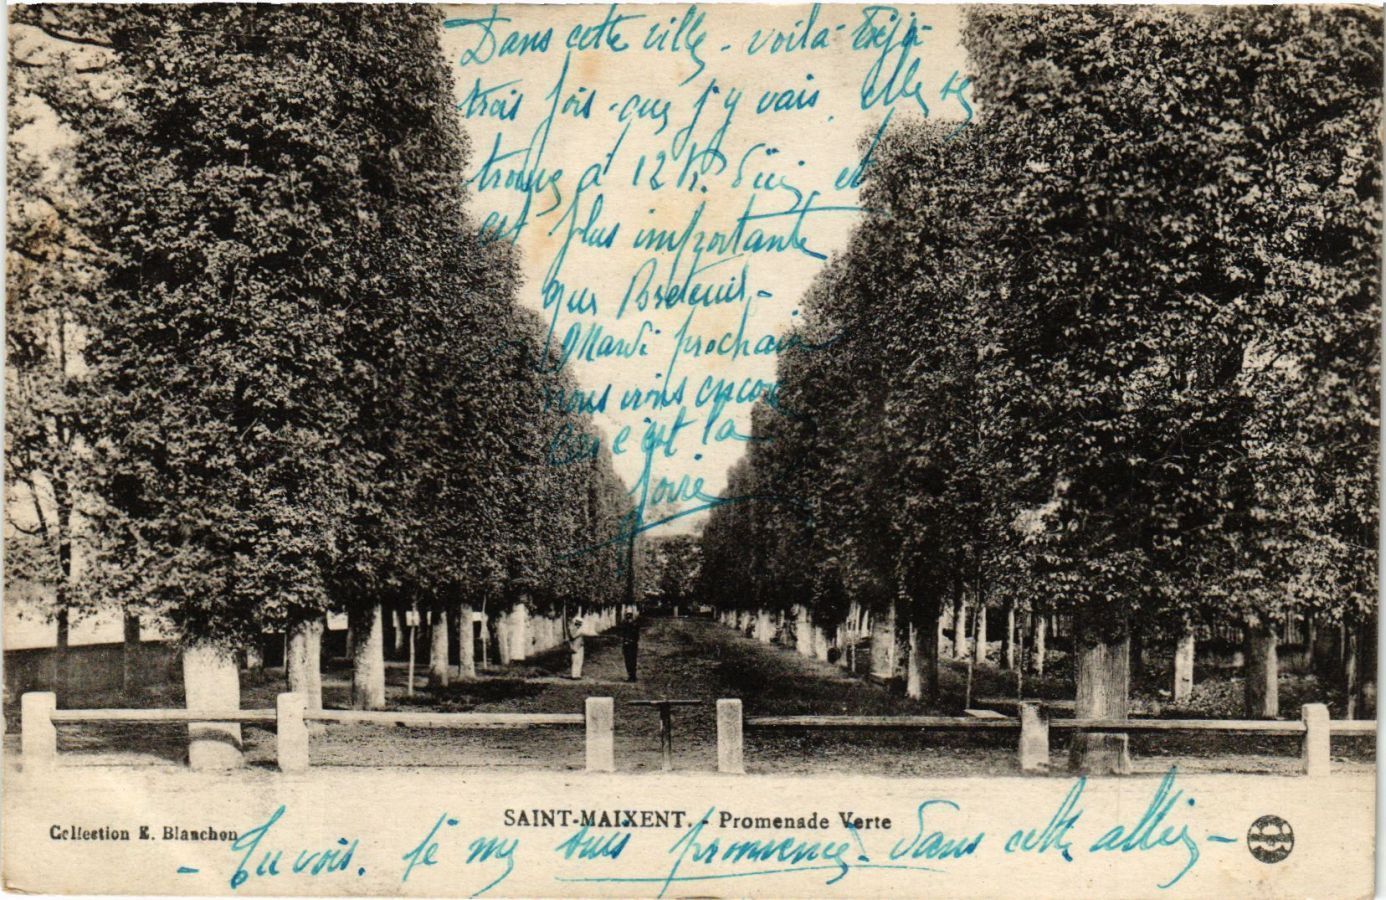 Dans cette ville - voilà - déjà
trois fois - que j'y vais. elle se
trouve à 12 K. d'ici, et
est plus importante
que
Mardi prochain
nous irons encore
car c'est la
foire
SAINT-MAIXENT. - Promenade Verte
Collection E. Blanchon
- Tu vois. je me suis promenée - dans cette allée -